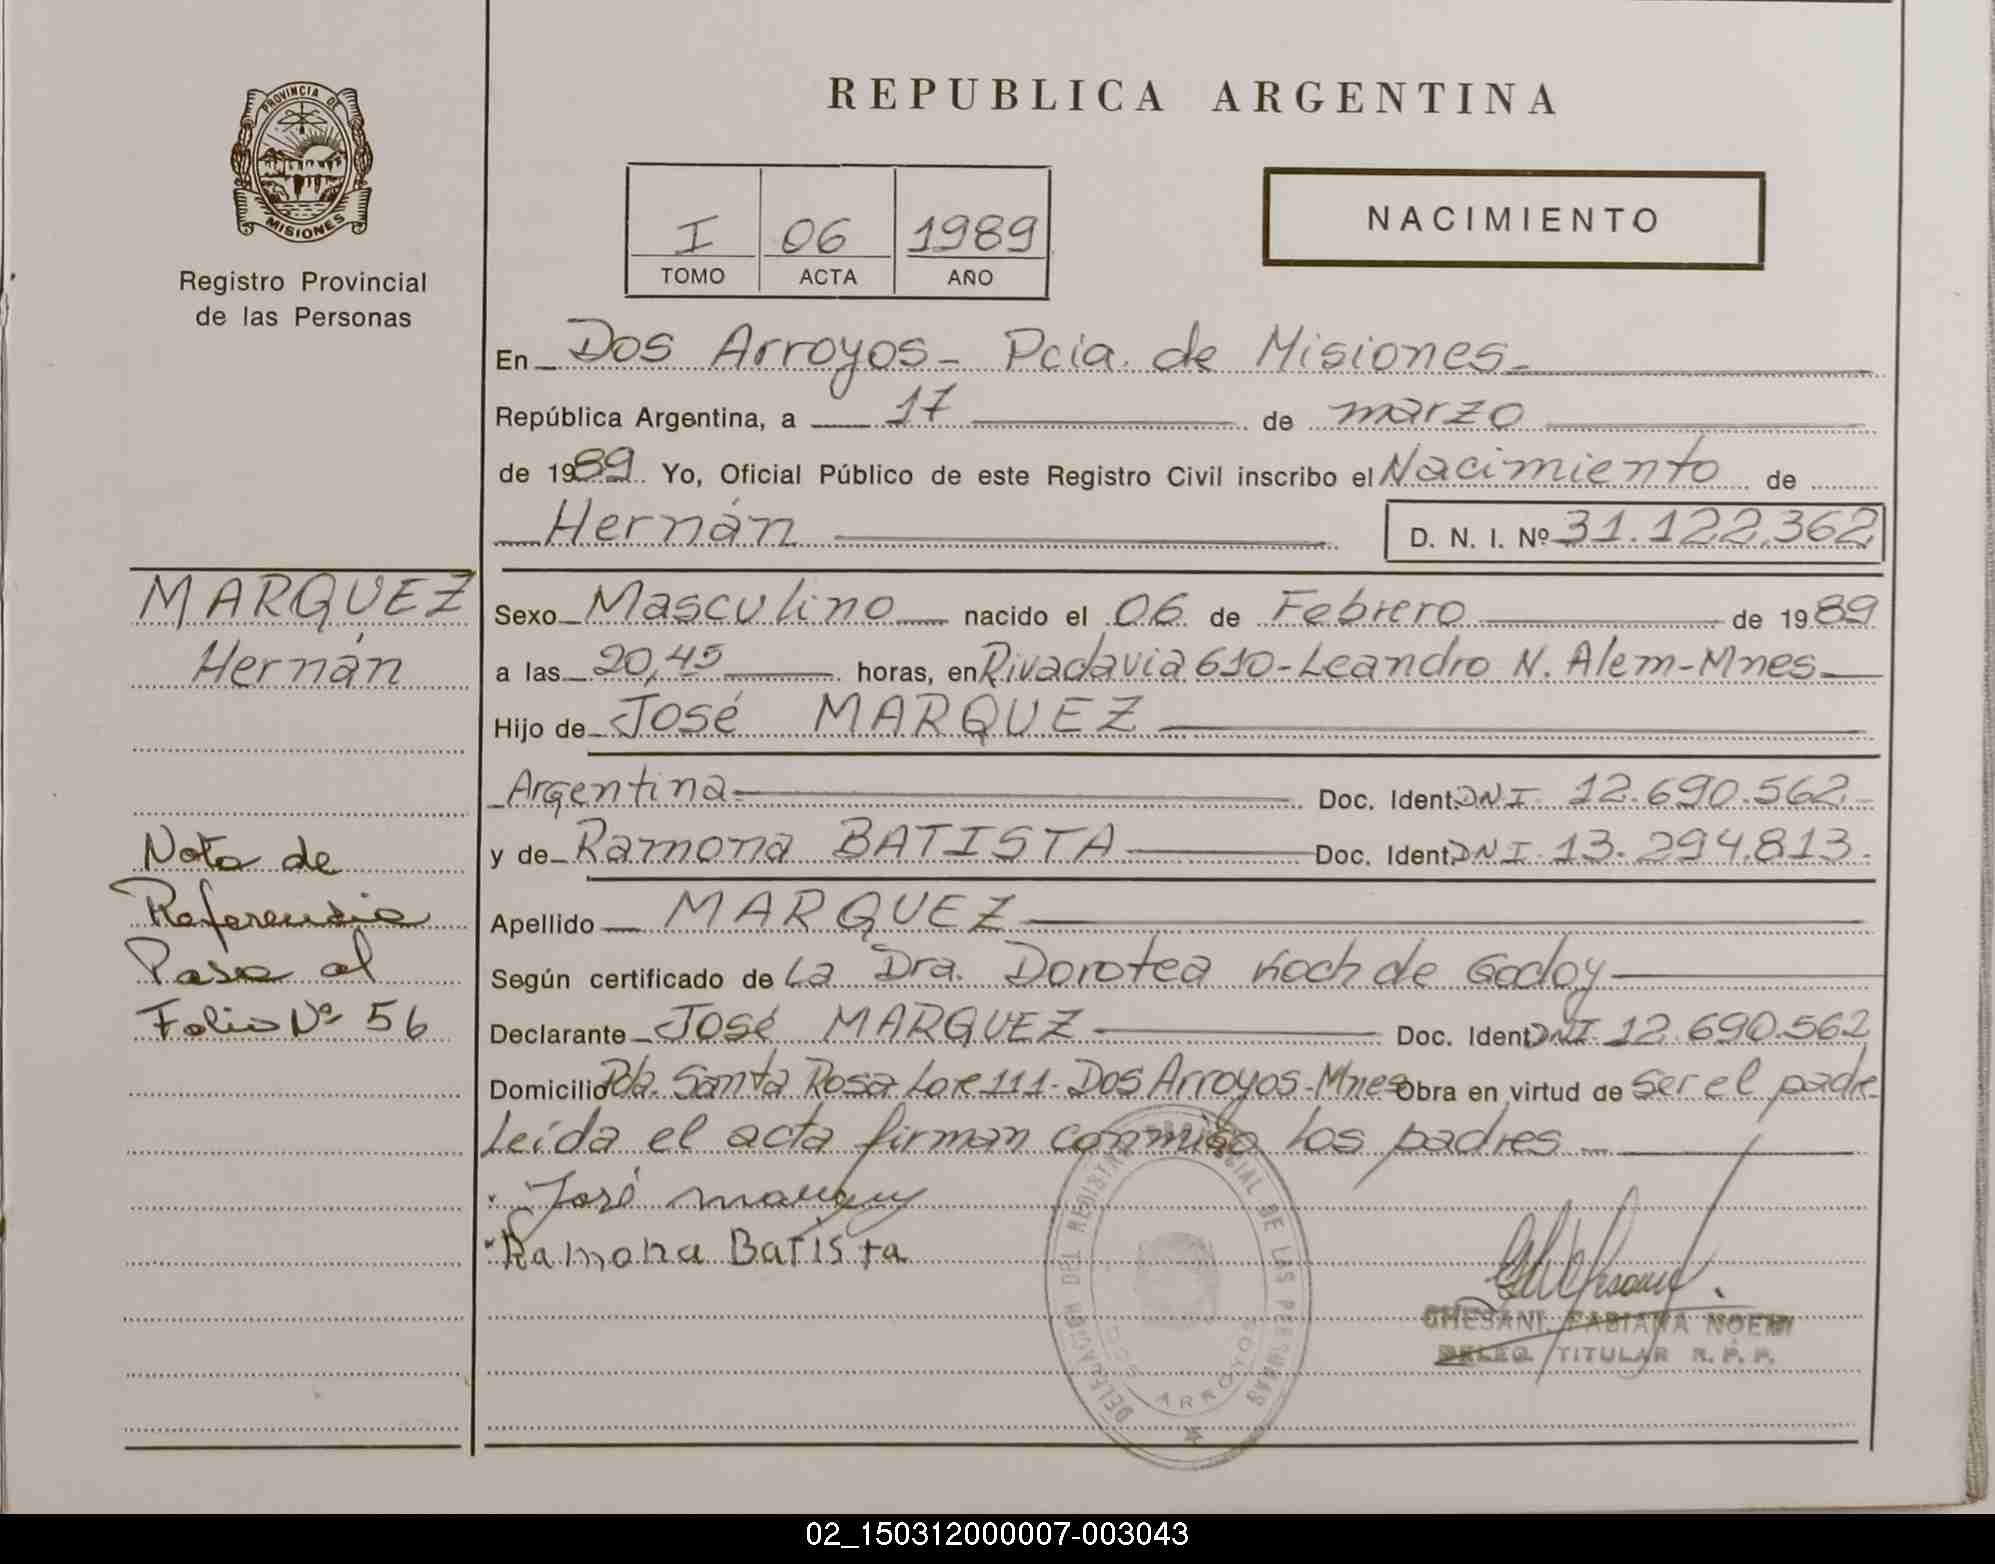 PROVINCIA DE
MISIONES
Registro Provincial
de las Personas
MARQUEZ
Hernán
Nota de
Referencia
Pasa al
Folio Nº 56
REPUBLICA ARGENTINA
I 06 1989
TOMO ACTA AÑO
NACIMIENTO
En Dos Arroyos - Pcia. de Misiones
República Argentina, a 17 de marzo
de 1989. Yo, Oficial Público de este Registro Civil inscribo el Nacimiento de
Hernán D. N. I. Nº 31.122.362
Sexo Masculino nacido el 06 de Febrero de 1989
a las 20,45 horas, en Rivadavia 610 - Leandro N. Alem - Mnes
Hijo de José MARQUEZ
Argentina Doc. Ident. DNI 12.690.562
y de Ramona BATISTA Doc. Ident. DNI 13.294.813
Apellido MARQUEZ
Según certificado de La Dra. Dorotea Koch de Godoy
Declarante José MARQUEZ Doc. Ident. DNI 12.690.562
Domicilio Pda. Santa Rosa Lote 111 - Dos Arroyos - Mnes Obra en virtud de ser el padre
Leída el acta firman conmigo los padres
José Marquez
Ramona Batista
DELEGACION DEL REGISTRO PROVINCIAL DE LAS PERSONAS
DOS ARROYOS
GHESANI, FABIANA NOEMI
DELEG. TITULAR R. P. P.
02_150312000007-003043